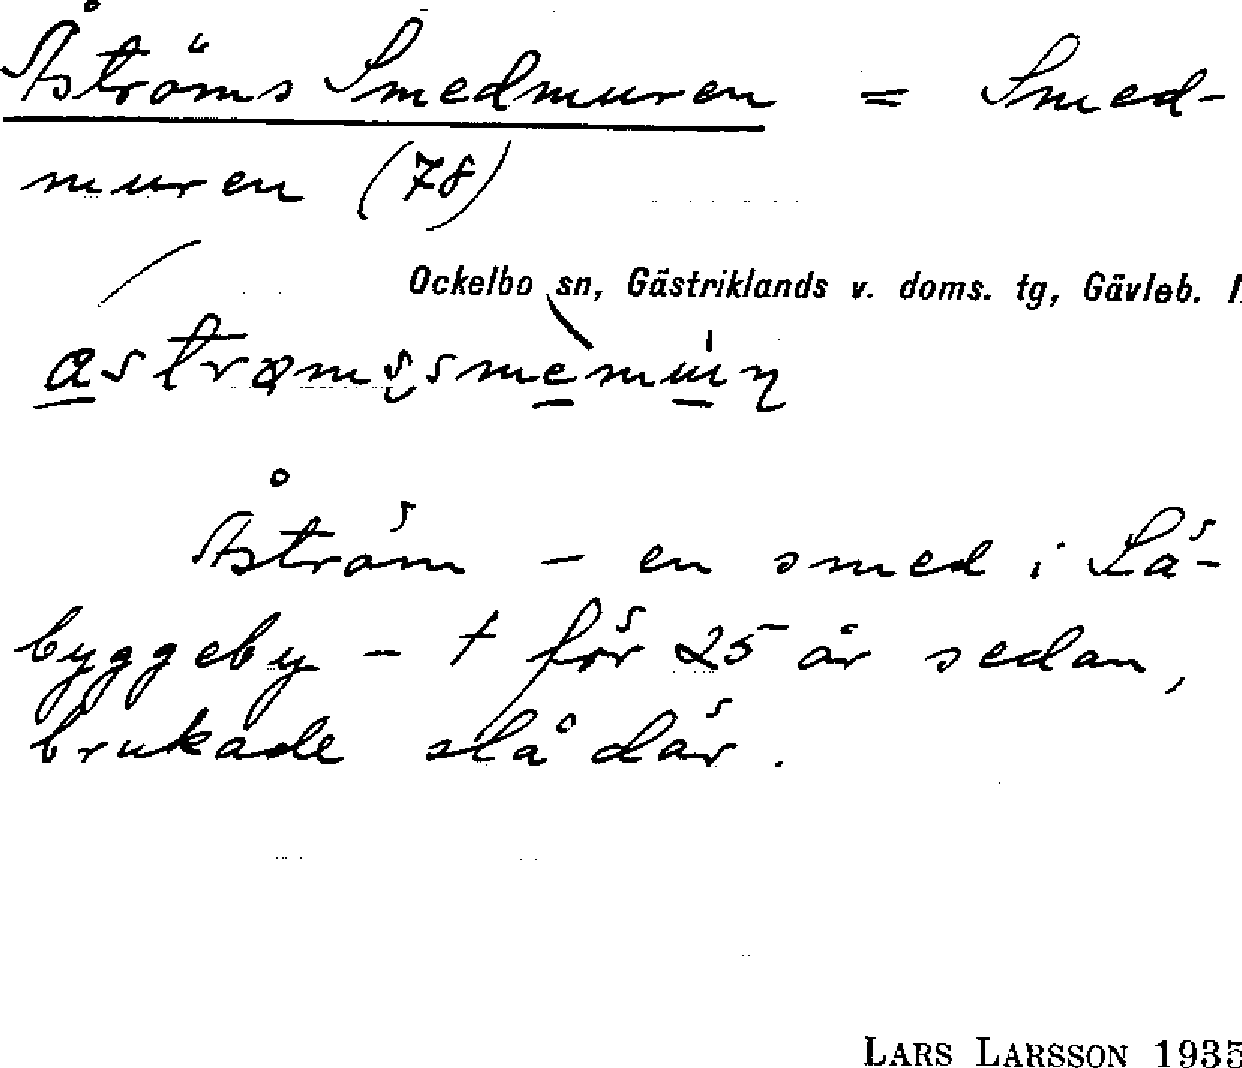 Åströms Smedmuren = Smed-
muren (78)
Ockelbo sn, Gästriklands v. doms. tg, Gävleb. l.
Åström - en smed i Lä-
byggeby - † för 25 år sedan,
brukade slå där.
LARS LARSSON 1935